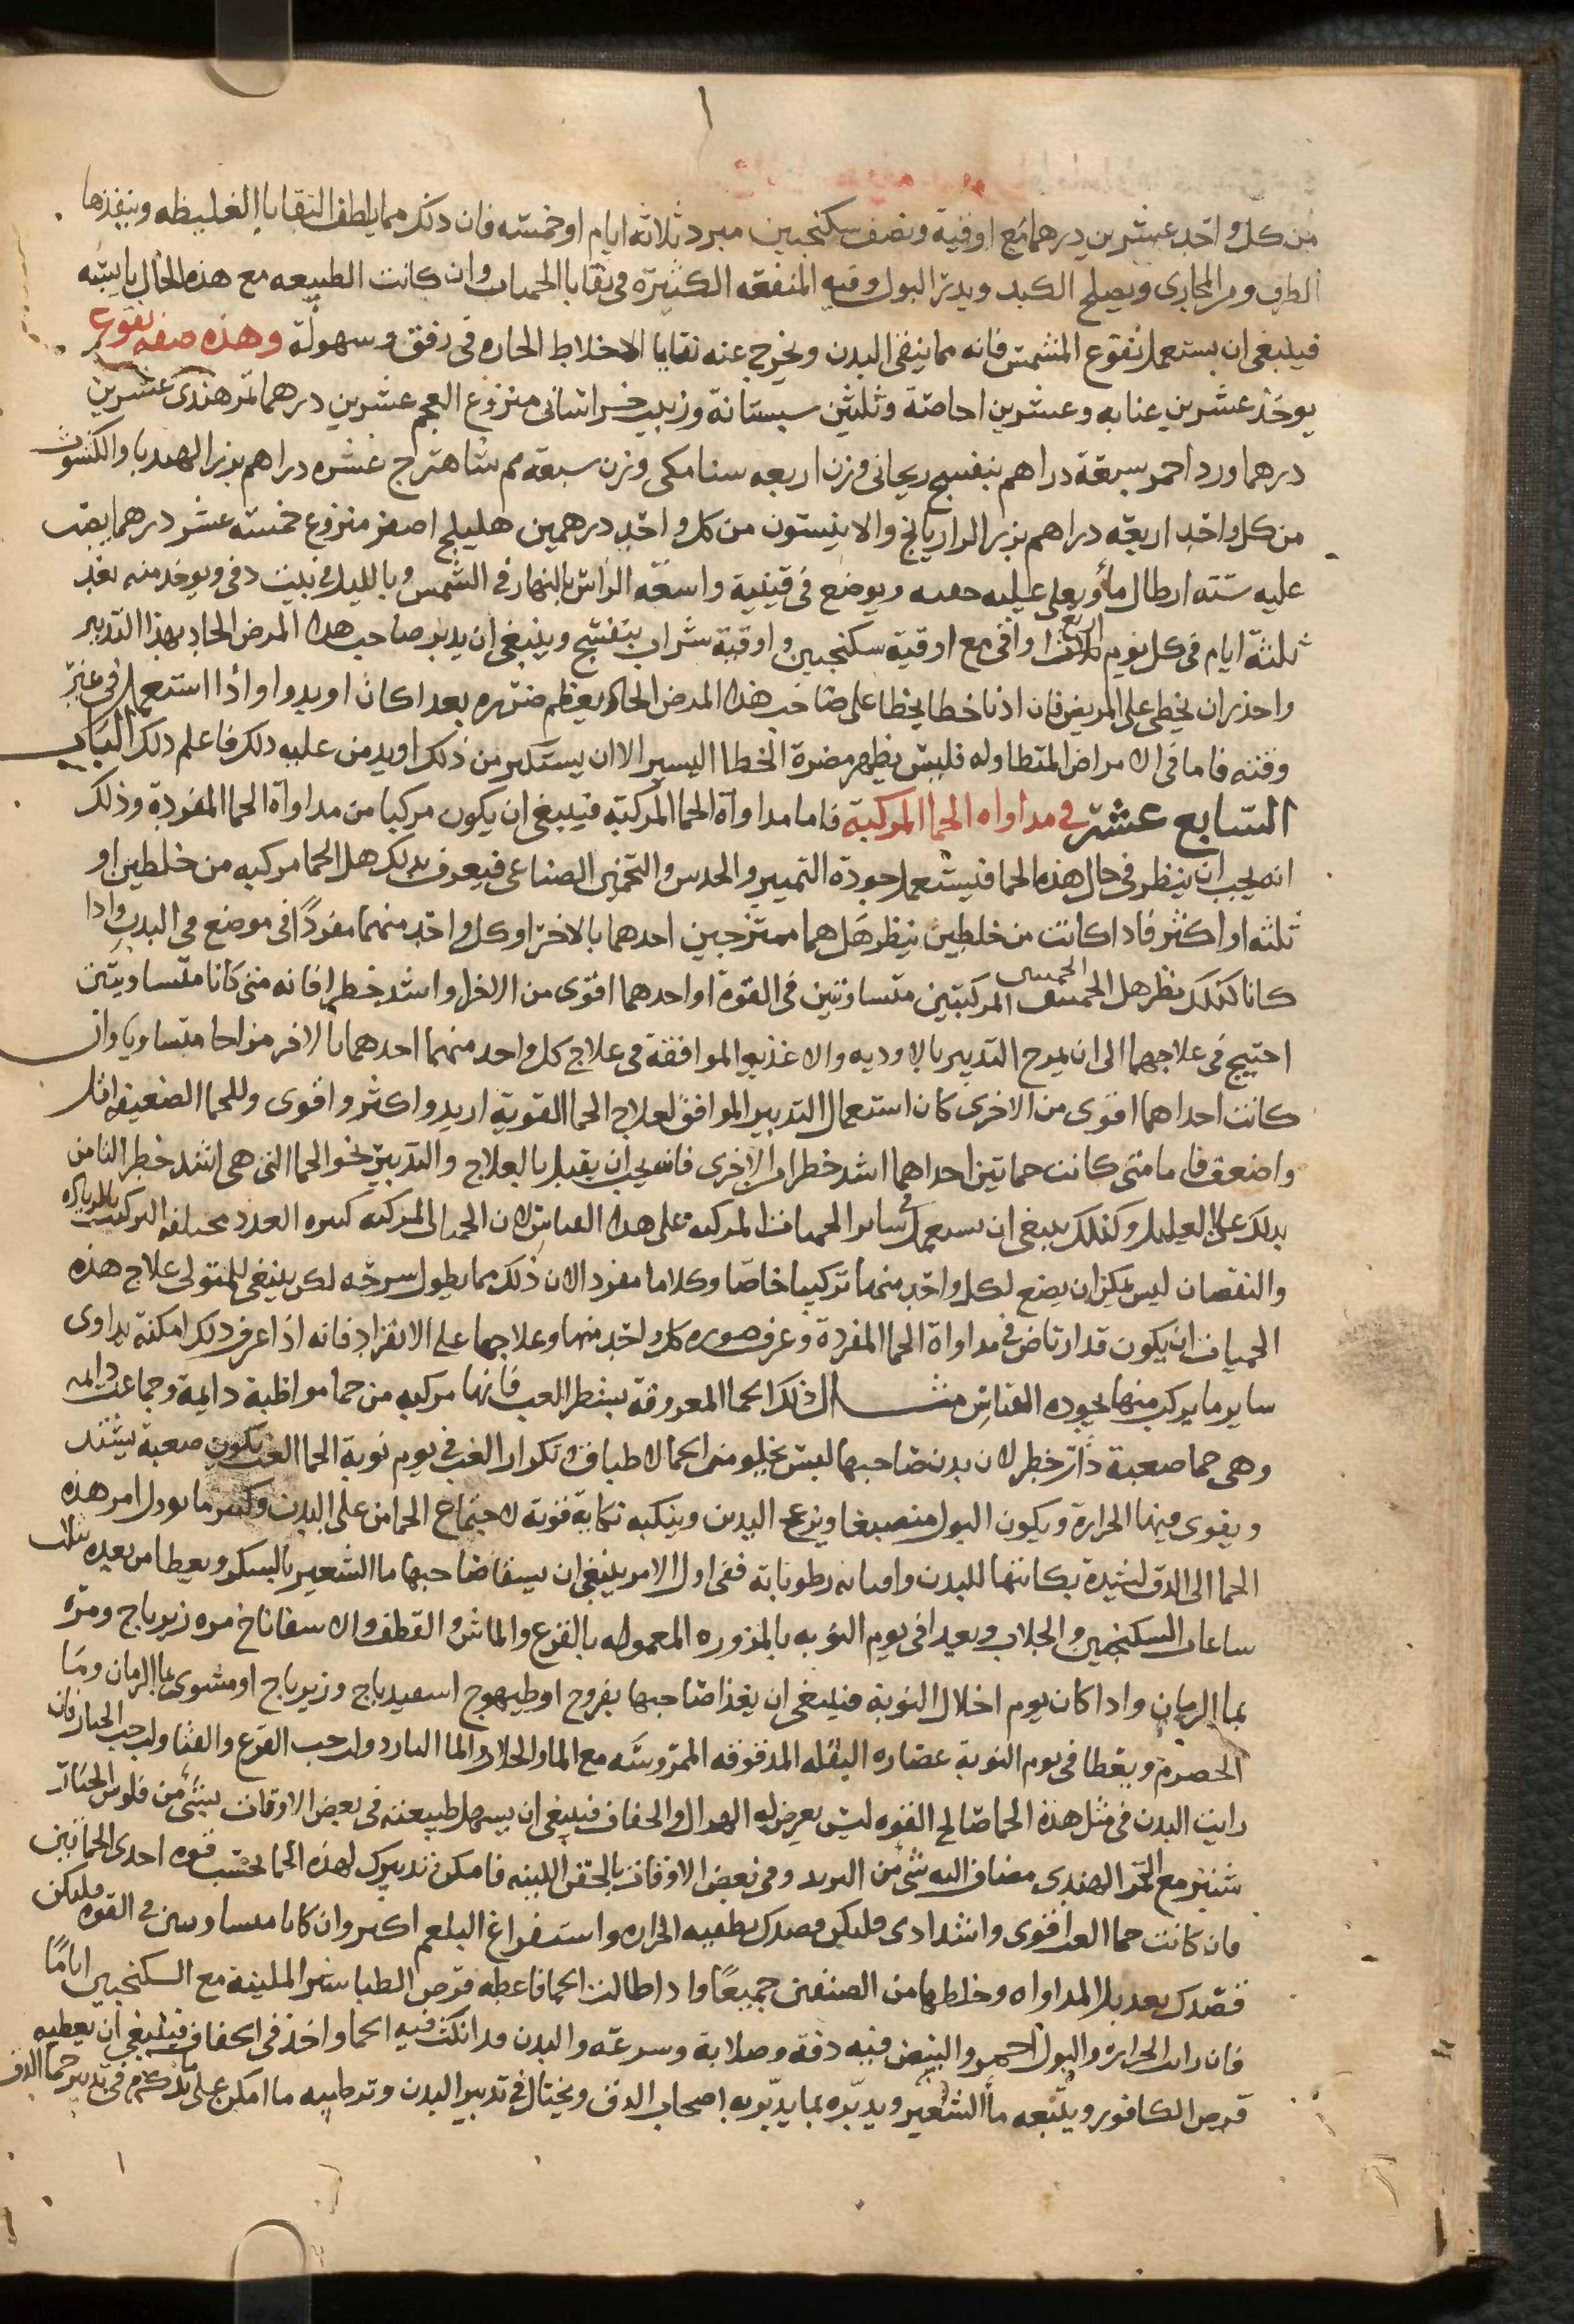 من كل واحد عشرين درهما مع اوقية ونصف سكنجبين مبرد ثلاثه ايام او خمسه فان ذلك مما يلطف البقايا الغليظه وينفذها
الطرف ومر المجارى ويصلح الكبد ويدر البول وفيه المنفعه الكثيرة فى بقايا الحميات وان كانت الطبيعه مع هذه الحال يابسه
فينبغى ان يستعمل نقوع المشمش فانه مما ينقى البدن ويخرج عنه بقايا الاخلاط الحاره فى رفق وسهولة وهذه صفه نقوع
يوخذ عشرين عنابه وعشرين اجاصة وثلثين سبستانة وزبيب خراسانى منزوع العجم عشرين درهما تمر هندى عشرين
درهما ورد احمر سبعة دراهم بنفسج ريحانى وزن اربعه سنا مكى وزن سبعه دراهم شاهترج عشره دراهم بزر الهندبا والكشوث
من كل واحد اربعه دراهم بزر الرازيانج والانيسون من كل واحد درهمين هليلج اصفر منزوع خمسه عشر درهما يصب
عليه ستة ارطال ماء ويغلى غليه خفيفه ويوضع فى قنينة واسعه الراس بالنهار فى الشمس وبالليل فى بيت دفى ويوخذ منه بعد
ثلثة ايام فى كل يوم اربع اواقى مع اوقية سكنجبين واوقية شراب بنفسج وينبغى ان يدبر صاحب هذا المرض الحاد بهذا التدبير
واحذر ان يخطى على المريض فان ادنا خطا يخطا على صاحب هذا المرض الحاد يعظم ضرره بعدا كان او بدوا واذا استعمل فى غير
وقته فاما فى الامراض المتطاوله فليس يظهر مضرة الخطا اليسير الا ان يستكبر من ذلك او يدمن عليه ذلك فاعلم ذلك الباب
السابع عشر فى مداواه الحما المركبة فاما مداواة الحما المركبة فينبغى ان يكون مركبا من مداواة الحما المفردة وذلك
انه يجب ان ينظر فى حال هذه الحما فيستعمل جودة التمييز والحدس والتخمين الصناعى فيعرف بذلك هل الحما مركبه من خلطين او
ثلثه او اكثر فاذا كانت من خلطين ينظر هل هما ممتزجين احدهما بالاخر او كل واحد منهما مفردًا فى موضع فى البدن واذا
كانا كذلك نظر هل الحميين المركبتين متساويتين فى القوة او احدهما اقوى من الاخر واشد خطرا فانه متى كانا متساويتين
احتيج فى علاجهما الى ان يمزج التدبير بالادويه والاغذيه الموافقة فى علاج كل واحد منهما احدهما بالاخر مزاجا متساويا وان
كانت احداهما اقوى من الاخرى كان استعمال التدبير الموافق لعلاج الحما القوية ازيد واكثر واقوى وللحما الضعيفه اقل
واضعف فاما متى كانت حماتين احداهما اشد خطرا من الاخرى فانه يجب ان يقبل بالعلاج والتدبير نحو الحما التى هى اشد خطر التامن
بذلك على العليل وكذلك ينبغى ان يستعمل فى ساير الحميات المركبه على هذا القياس لان الحما المركبه كثيره العدد مختلفه التركيب بالزياده
والنقصان ليس يمكن ان يضع لكل واحد منهما تركيبا خاصا وكلاما مفردا لان ذلك مما يطول شرحه لكن ينبغى للمتولى علاج هذه
الحميات ان يكون قد ارتاض فى مداواة الحما المفردة وعرف صوره كل واحد منها وعلاجها على الانفراد فانه اذا عرف ذلك امكنه يداوى
ساير ما يركب منها بجوده القياس مثال ذلك الحما المعروفة بشطر الغب فانها مركبه من حما مواظبة دايمة وحما غب دايمه
وهى حما صعبة ذات خطر لان بدن صاحبها ليس يخلو من الحما لاطباق وتكرار الغب فى يوم نوبة الحما الغب يكون صعبة يشتد
ويقوى فيها الحرارة ويكون البول منصبغا ويزعج البدن وينكيه نكاية قوية لاجتماع الحماتين على البدن وكثيرا ما يوول امر هذه
الحما الى الدق لشدة نكاتها للبدن وافنائه رطوباته ففى اول الامر ينبغى ان يسقا صاحبها ما الشعير بالسكر ويعطا من بعده بثلث
ساعات السكنجبين والجلاب ويغدا فى يوم النوبه بالمزوره المعموله بالقرع والماش والقطف والاسفاناخ مره زيرباج ومرة
بما الرمان واذا كان يوم اخلال النوبة فينبغى ان يغذا صاحبها بفروج او طيهوج اسفيدباج وزيرباج او مشوى بما الرمان وما
الحصرم ويعطا فى يوم النوبة عصاره البقله المدقوقه الممروسه مع الماء والجلاب والما البارد ولب حب القرع والقثا ولب حب الخيار فان
رايت البدن فى مثل هذه الحما صالح القوه ليس يعرض له الهزال والجفاف فينبغى ان يسهل طبيعته فى بعض الاوقات بشئ من فلوس الخيار
شنبر مع التمر الهندى مضاف اليه شى من التربد وفى بعض الاوقات بالحقن اللينه فامكن تدبيرك لهذه الحما بحسب قوه احدى الحماتين
فان كانت حما الغب اقوى واشد اذى فليكن قصدك بطفيه الحراره واستفراغ البلغم اكثر وان كانا متساويين فى القوه فليكن
قصدك بعديل المداواه وخلطها من الصنفين جميعًا واذا طالت الحما فاعطه قرص الطباشير الملينة مع السكنجبين اياما
فان رايت الحراره والبول احمر والنبض فيه دقة وصلابة وسرعه والبدن قد انهكت فيه الحما واخذ فى الجفاف فينبغى ان يعطيه
قرص الكافور ويتبعه ماء الشعير ويدبره بما يدبر به اصحاب الدق ويحتال فى تدبير البدن وترطيبه ما امكن على ما ذكرته فى تدبير حما الدق